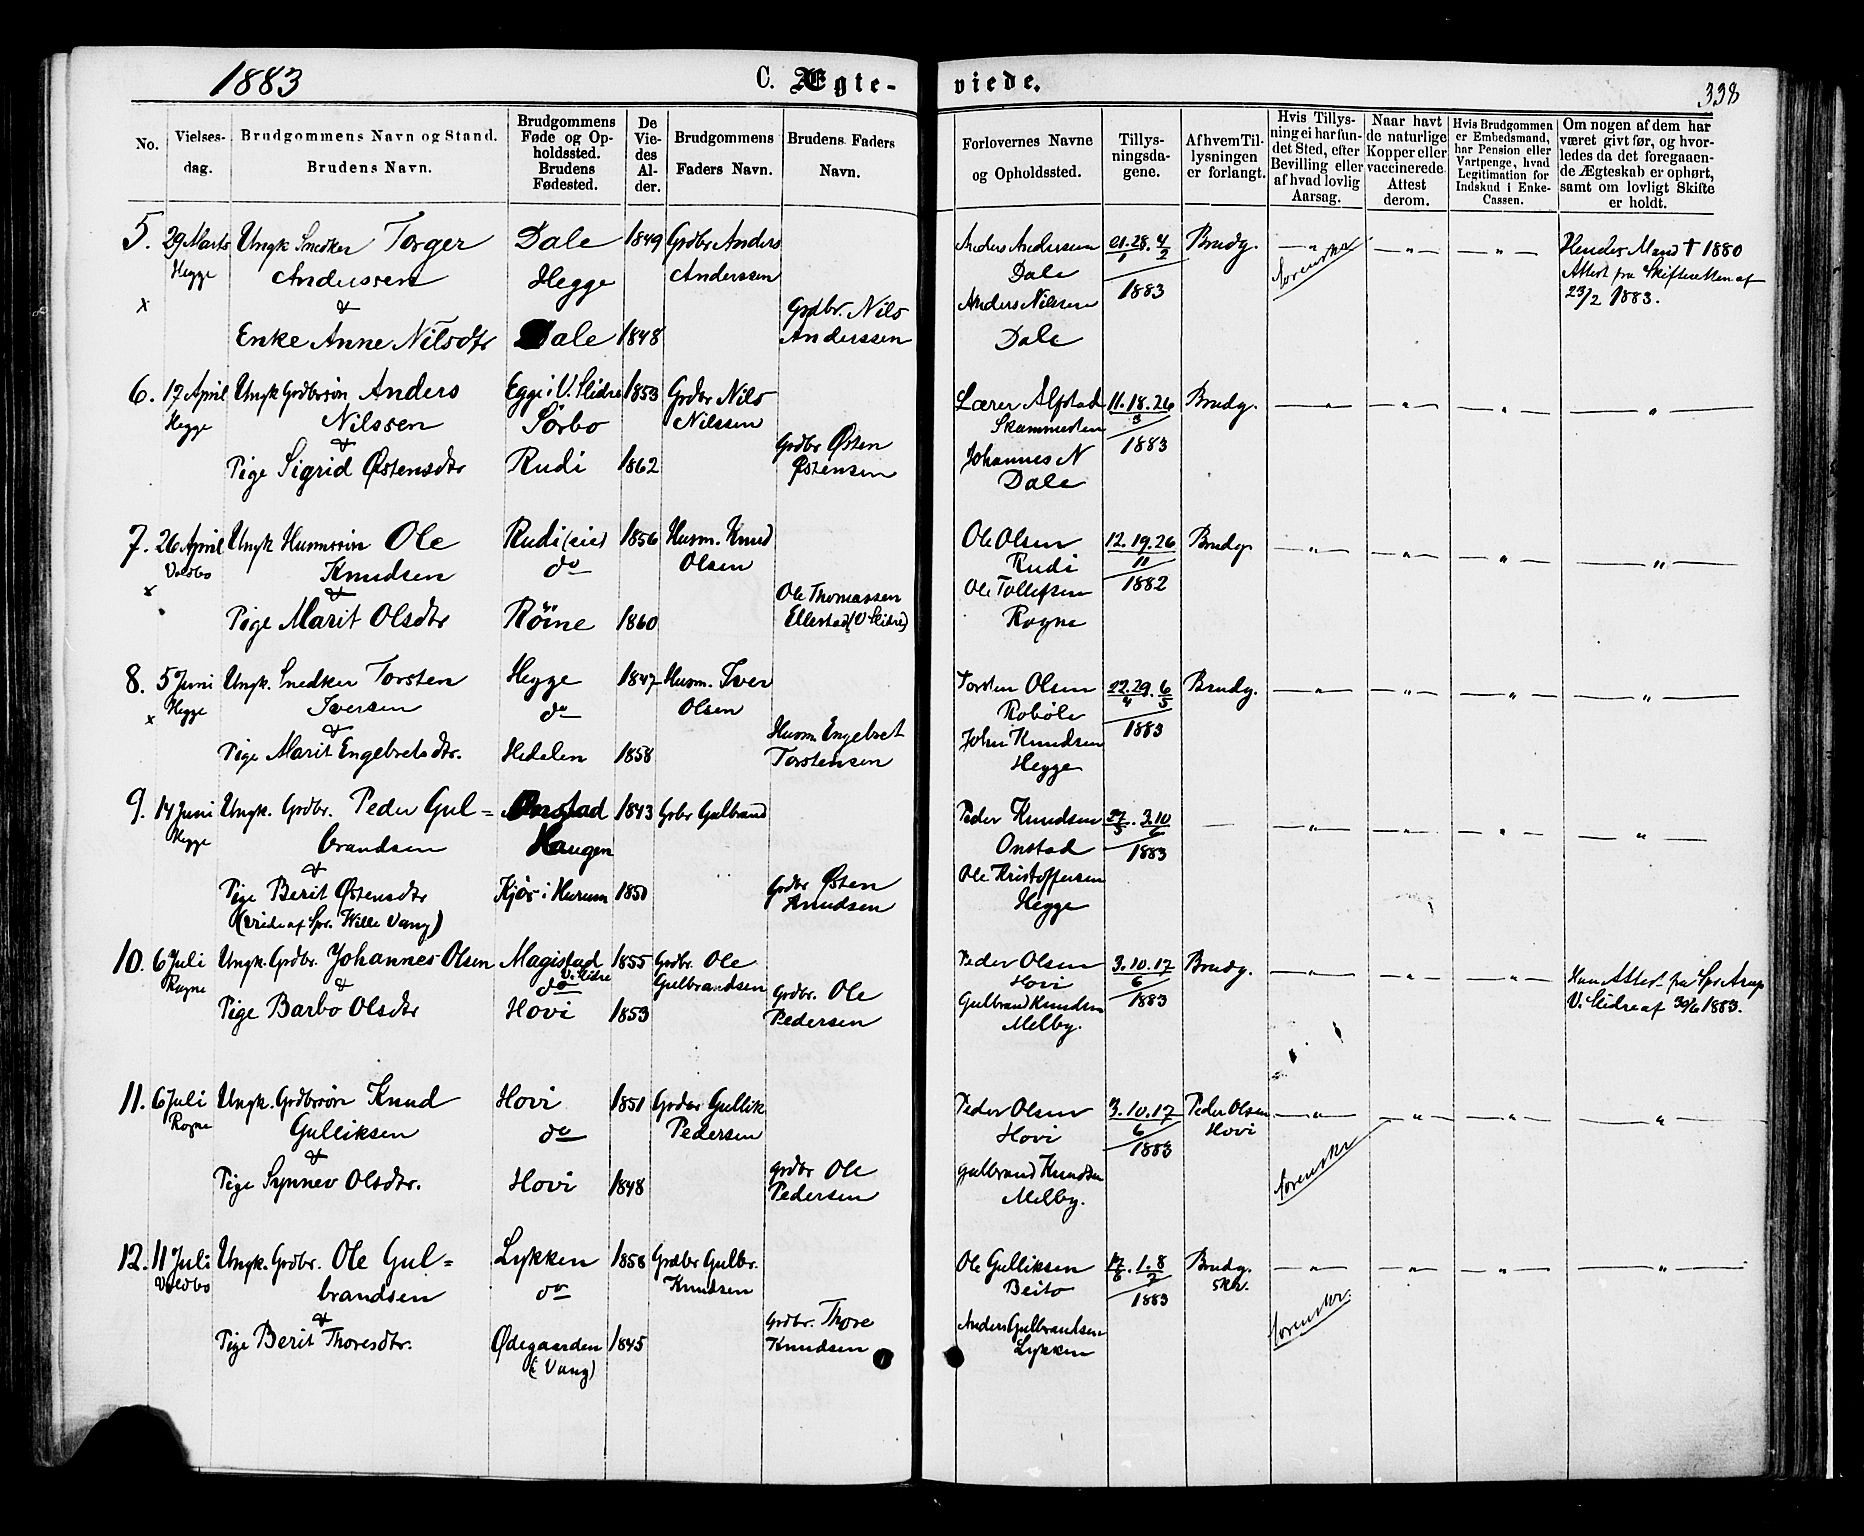 1883
C. Ægte-
viede.
338
No.
Vielses-
dag.
Brudgommens Navn og Stand.
Brudens Navn.
Brudgommens
Føde og Op-
holdssted.
Brudens
Fødested.
De
Vie-
des
Al-
der.
Brudgommens
Faders Navn.
Brudens Faders
Navn.
Forlovernes Navne
og Opholdssted.
Tillys-
ningsda-
gene.
Af hvem Til-
lysningen
er forlangt.
Hvis Tillys-
ning ei har fun-
det Sted, efter
Bevilling eller
af hvad lovlig
Aarsag.
Naar havt
de naturlige
Kopper eller
vaccinerede.
Attest
derom.
Hvis Brudgommen
er Embedsmand,
har Pension eller
Vartpenge, hvad
Legitimation for
Indskud i Enke-
Cassen.
Om nogen af dem har
været givt før, og hvor-
ledes da det foregaaen-
de Ægteskab er ophørt,
samt om lovligt Skifte
er holdt.
5. 29 Marts
Hegge
x
Ungk Snedker Torger
Anderssen
&
Enke Anne Nilsdtr
Dale
Hegge
Dale
1849
1848
Grdbr Anders
Anderssen
Grdbr. Nils
Anderssen
Anders Anderssen
Dale
Anders Nilssen
Dale
21. 28. 4
1 2
1883
Brudg.
— " —
— " —
— " —
Hendes Mand † 1880
Attest fra Skifteretten af
23/2 1883.
6. 17 April
Hegge
Ungk Grdbrsøn Anders
Nilssen
&
Pige Sigrid Østensdtr
Egge i V. Slidre
Sørbo
Rudi
1853
1862
Grdbr Nils
Nilssen
Grdbr Østen
Østensen
Lærer Alfstad
Skammesten
Johannes N
Dale
11. 18. 26
3
1883
Brudg.
— " —
— " —
— " —
— " —
7. 26 April
Voldbo
x
Ungk Husmssøn Ole
Knudsen
&
Pige Marit Olsdtr
Rudi (eie)
do
Røine
1856
1860
Husm. Knud
Olsen
Ole Thomassen
Ellestad (V Slidre)
Ole Olsen
Rudi
Ole Tollefsen
Rogne
12. 19. 26
11
1882
Brudg.
— " —
— " —
— " —
— " —
8. 5 Juni
Hegge
x
Ungk. Snedker Torsten
Iversen
&
Pige Marit Engebretsdtr.
Hegge
do
Hedalen
1847
1858
Husm. Iver
Olsen
Husm Engebret
Torstensen
Torsten Olsen
Robøle
John Knudsen
Hegge
22. 29. 6
4 5
1883
Brudg.
— " —
— " —
— " —
— " —
9. 14 Juni
Hegge
Ungk. Grdbr. Peder Gul=
brandsen
&
Pige Berit Østensdtr
(viede af Spr. Wille Vang)
Onstad
Haugen
Kjøs i Hurum
1843
1850
Grbr Gulbrand
Grdbr Østen
Knudsen
Peder Knudsen
Onstad
Ole Kristoffersen
Hegge
27. 3. 10
5 6
1883
—
— " —
— " —
— " —
— " —
10. 6 Juli
Rogne
Ungk. Grdbr. Johannes Olsen
&
Pige Barbo Olsdtr
Magistad
V. Slidre
do
Hovi
1855
1853
Grdbr. Ole
Gulbrandsen
Grdbr. Ole
Pedersen
Peder Olsen
Hovi
Gulbrand Knudsen
Melby.
3. 10. 17
6
1883
Brudg.
— " —
— " —
— " —
Han Attest fra Spr Arup
V. Slidre af 30/6 1883.
11. 6 Juli
Rogne
Ungk. Grdbrsøn Knud
Gulliksen
&
Pige Synnev Olsdtr.
Hovi
do
Hovi
1851
1848
Grdbr Gullik
Pedersen
Grdbr Ole
Pedersen
Peder Olsen
Hovi
Gulbrand Knudsen
Melby.
3. 10. 17
6
1883
Peder Olsen
Hovi
— " —
— " —
— " —
— " —
12. 11 Juli
Voldbo
Ungk. Grdbr. Ole Gul=
brandsen
&
Pige Berit Thoresdtr.
Lykken
do
Ødegaarden
(i Vang)
1858
1845
Grdbr Gulbr.
Knudsen
Grdbr. Thore
Knudsen
Ole Gulliksen
Beito
Anders Gulbrandsen
Lykken
17. 1. 8
6 7
1883
Brudg.
skr.
— " —
— " —
— " —
— " —